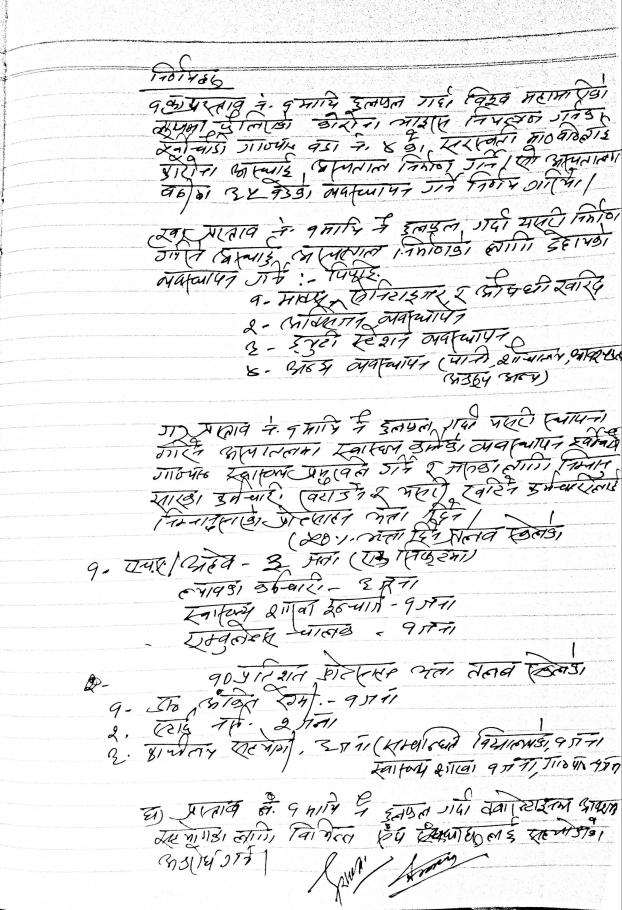 निर्णयहरु
१. क) प्रस्ताव नं. १ माथि छलफल गर्दा विश्व महामारीको
रुपमा फैलिएको कोरोना भाइरस नियन्त्रण गर्न
गा०पा० वडा नं. ४ को सरस्वती मा०वि०लाई
कोरोना अस्थाई अस्पताल निर्माण गर्ने। सो अस्पतालमा
३५ बेडको व्यवस्थापन गर्ने निर्णय गरियो।
ख) प्रस्ताव नं. १ माथि नै छलफल गर्दा यसरी निर्माण
गरिने अस्थाई अस्पताल निर्माणका लागि देहायको
व्यवस्थापन गर्ने :- पिपिई,
१- मास्क, सेनिटाइजर र औषधी खरिद
२- अक्सिजन व्यवस्थापन
३- ड्युटी स्टेशन व्यवस्थापन
४- अन्य व्यवस्थापन (पानी, शौचालय, आवश्यकता
अनुरुप अन्य)
ग) प्रस्ताव नं. १ माथि नै छलफल गर्दा यसरी स्थापना
गरिने अस्पतालमा स्वास्थ्य कर्मीको व्यवस्थापन
गा०पा० स्वास्थ्य प्रमुखले गर्ने र लागि निम्नानु
सारका कर्मचारी खटाउने र यसरी खटिने कर्मचारीलाई
निम्नानुसारको प्रोत्साहन भत्ता दिने।
भत्ता दिने तलब स्केलको
१- एच.ए./अहेव - ३ जना (एक सिफ्टमा)
ल्यावका कर्मचारी - ३ जना
स्वास्थ्य शाखा इन्चार्ज - १ जना
एम्बुलेन्स चालक - १ जना
२- १० प्रतिशत प्रोत्साहन भत्ता तलब स्केलको
१- डा० - १ जना
२. स्टाफ नर्स - २ जना
३. कार्यालय सहयोगी, ३ जना (सम्बन्धित विद्यालयको १ जना
स्वास्थ्य शाखा १ जना, गा०पा० १ जना
घ) प्रस्ताव नं. १ माथि नै छलफल गर्दा क्वारेन्टाइनमा आवश्यक
सहयोगका लागि विभिन्न संघ लाई सहयोगको
अनुरोध गर्ने।